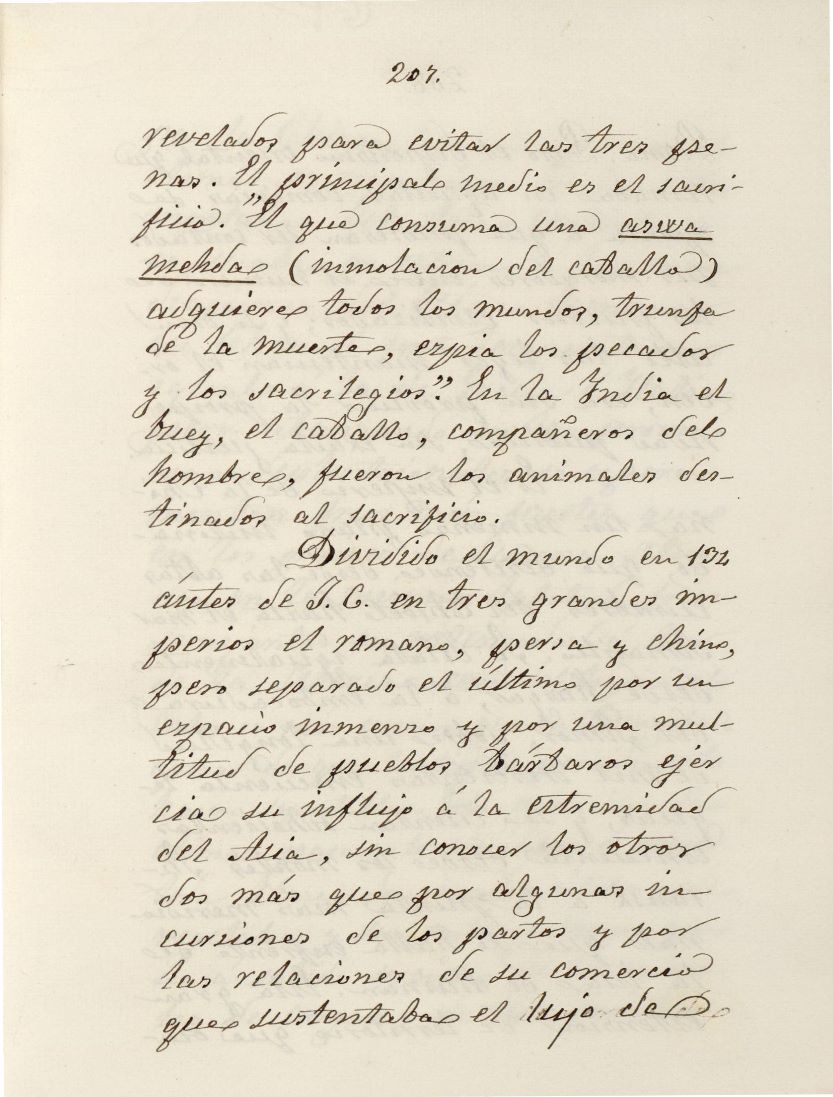 207.
revelados para evitar las tres pe-
nas. El principal medio es el sacri-
ficio. "El que consuma una aswa
mehda (inmolacion del caballo)
adquiere todos los mundos, triunfa
de la muerte, espia los pecados
y los sacrilegios." En la India el
buey, el caballo, compañeros del
hombre, fueron los animales des-
tinados al sacrificio.
Dividido el mundo en 134
ántes de J. C. en tres grandes im-
perios el romano, persa y chino,
pero separado el último por un
espacio inmenso y por una mul-
titud de pueblos bárbaros ejer
cia su influjo á la estremidad
del Asia, sin conocer los otros
dos más que por algunas in-
cursiones de los partos y por
las relaciones de su comercio
que sustentaba el lujo de